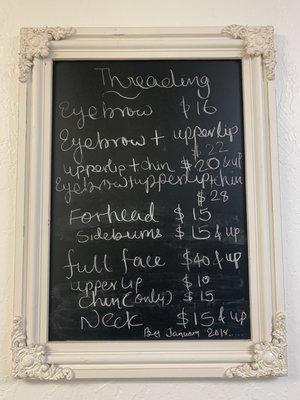 Threading
Eyebrow $16
Eyebrow + upperlip
$22
upperlip + chin $20 & up
Eyebrow + upperlip + chin
$28
Forhead $15
Sideburns $15 & up
full face $40 & up
upperlip $10
Chin (only) $15
Neck $15 & up
January 2018